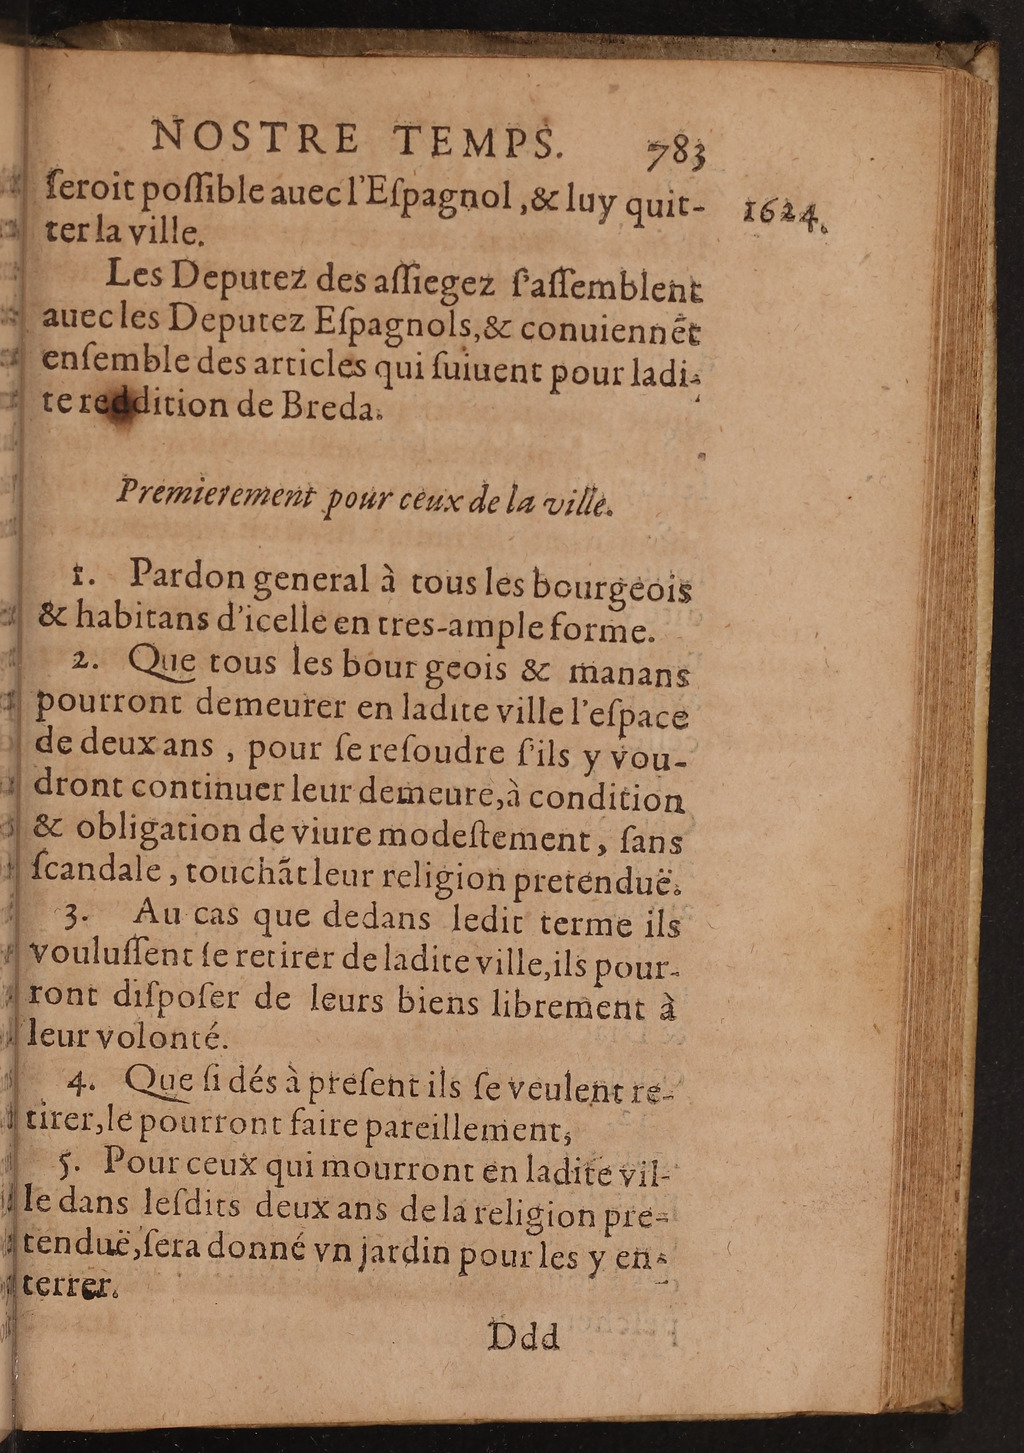 NOSTRE TEMPS. 783
ſeroit poſſible auec l'Eſpagnol, & luy quit-
1624.
ter la ville.
Les Deputez des aſſiegez ſ'aſſemblent
auec les Deputez Eſpagnols, & conuiennẽt
enſemble des articles qui ſuiuent pour ladi-
te reddition de Breda.
Premierement pour ceux de la ville.
1. Pardon general à tous les bourgeois
& habitans d'icelle en tres-ample forme.
2. Que tous les bourgeois & manans
pourront demeurer en ladite ville l'eſpace
de deux ans, pour ſe reſoudre ſ'ils y vou-
dront continuer leur demeure, à condition
& obligation de viure modeſtement, ſans
ſcandale, touchãt leur religion pretenduë.
3. Au cas que dedans ledit terme ils
vouluſſent ſe retirer de ladite ville, ils pour-
ront diſpoſer de leurs biens librement à
leur volonté.
4. Que ſi dés à preſent ils ſe veulent re-
tirer, le pourront faire pareillement;
5. Pour ceux qui mourront en ladite vil-
le dans leſdits deux ans de la religion pre-
tenduë, ſera donné vn jardin pour les y en-
terrer.
Ddd